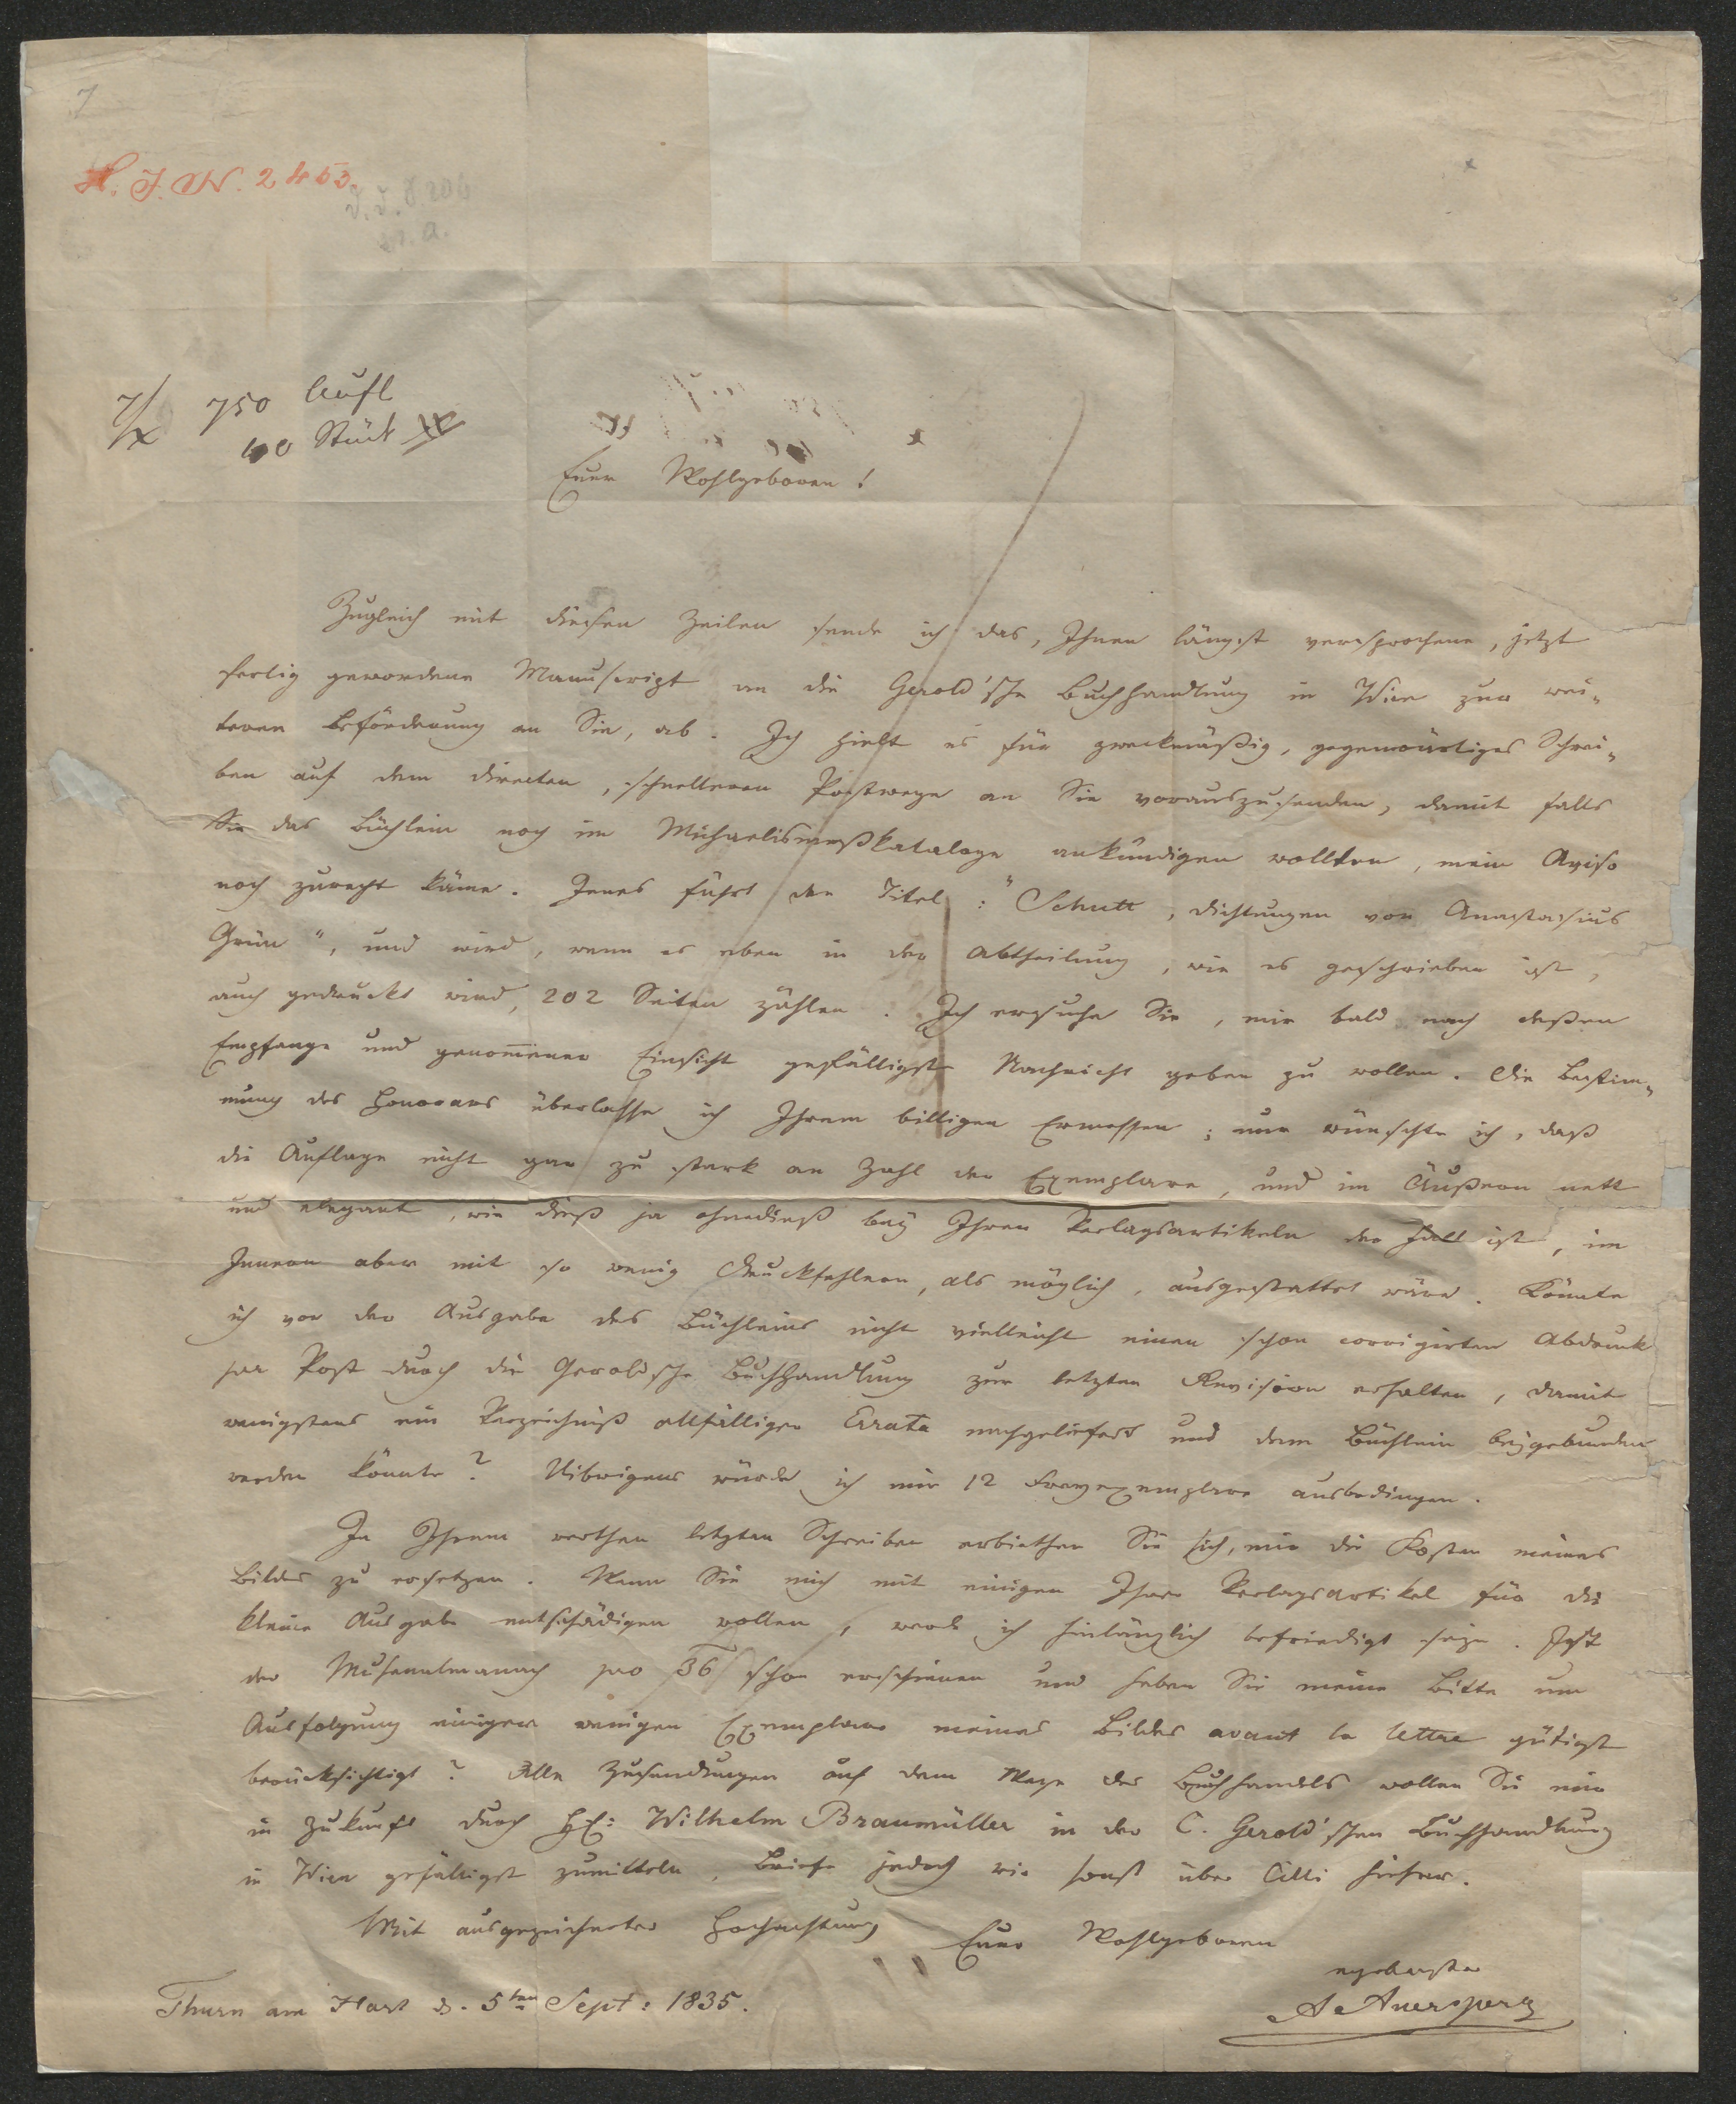 7
H. J. N. 2453.
J. J. 8.206
7/X 750 Aufl
60 Stück
Euer Wohlgeboren!
Zugleich mit diesen Zeilen sende ich das, Ihnen längst versprochene, jetzt
fertig gewordene Manuscript an die Gerold'sche Buchhandlung in Wien zur wei-
teren Beförderung an Sie, ab. Ich hielt es für zweckmäßig, gegenwärtiges Schrei-
ben auf dem directen, schnelleren Postwege an Sie vorauszusenden, damit falls
Sie das Büchlein noch im Michaelismeßkataloge ankündigen wollten, mein Aviso
noch zurecht käme. Jenes führt den Titel: "Schutt, Dichtungen von Anastasius
Grün", und wird, wenn es eben in der Abtheilung, wie es geschrieben ist,
auch gedruckt wird, 202 Seiten zählen. Ich ersuche Sie, mir bald nach deßen
Empfange und genom̅ener Einsicht gefälligst Nachricht geben zu wollen. Die Bestim-
mung des Honorars überlasse ich Ihrem billigen Ermessen; nur wünschte ich, daß
die Auflage nicht gar zu stark an Zahl der Exemplare, und im Äußern nett
und elegant, wie dieß ja ohnedieß bey Ihren Verlagsartikeln der Fall ist, im
Innern aber mit so wenig Druckfehlern, als möglich, ausgestattet wäre. Könnte
ich vor der Ausgabe des Büchleins nicht vielleicht einen schon corrigirten Abdruck
per Post durch die Geroldsche Buchhandlung zur letzten Revision erhalten, damit
wenigstens ein Verzeichniß allfälliger Errata nachgeliefert und dem Büchlein beygebunden
werden könnte? Uibrigens würde ich mir 12 Freyexemplare ausbedingen.
In Ihrem werthen letzten Schreiben erbiethen Sie sich, mir die Kosten meines
Bildes zu ersetzen. Wenn Sie mich mit einigen Ihrer Verlagsartikel für die
kleine Ausgabe entschädigen wollen, werde ich hinlänglich befriedigt seyn. Ist
der Musenalmanach pro 36 schon erschienen und haben Sie meine Bitte um
Ausfolgung einiger wenigen Exemplare meines Bildes avant la lettre gütigst
berücksichtigt? Alle Zusendungen auf dem Wege des Buchhandels wollen Sie mir
in Zukunft durch H: Wilhelm Braumüller in der C. Gerold'schen Buchhandlung
in Wien gefälligst zumitteln, Briefe jedoch wie sonst über Cilli hieher.
Mit ausgezeichneter Hochachtung
Euer Wohlgeboren
ergebenster
A Auersperg
Thurn am Hart d. 5ten Sept: 1835.